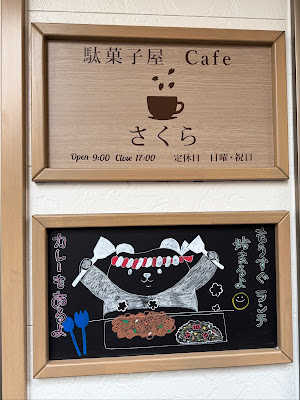 駄菓子屋 Cafe
さくら
Open 9:00 Close 17:00 定休日 日曜・祝日
もうすぐ ランチ
始まるよ
カレーもあるよ